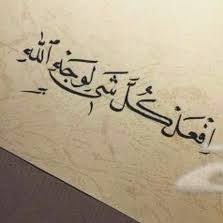 اِفعَل كُلَّ شَيٍ لِوَجْهِ اللّٰه